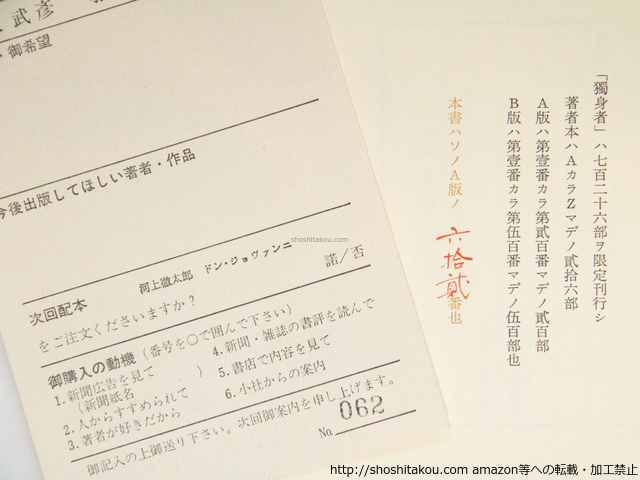 武彦
・御希望
今後出版してほしい著者・作品
次回配本 河上徹太郎 ドン・ジョヴァンニ
をご注文くださいますか? 諾/否
御購入の動機(番号を○で囲んで下さい)
1. 新聞広告を見て
(新聞紙名 )
2. 人からすすめられて
3. 著者が好きだから
4. 新聞・雑誌の書評を読んで
5. 書店で内容を見て
6. 小社からの案内
御記入の上御送り下さい。次回御案内を申し上げます。
No. 062
「獨身者」ハ七百二十六部ヲ限定刊行シ
著者本ハAカラZマデノ貳拾六部
A版ハ第壹番カラ第貳百番マデノ貳百部
B版ハ第壹番カラ第伍百番マデノ伍百部也
本書ハソノA版ノ 六拾貳 番也
shoshitakou.com
http://shoshitakou.com amazon等への転載・加工禁止